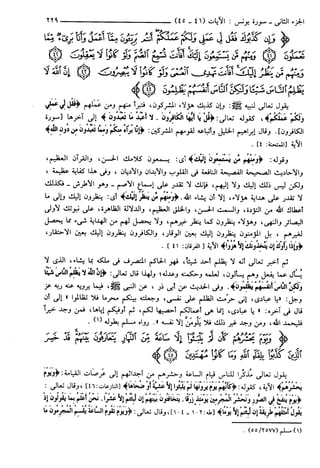 الجزء الثانى - سورة يونس : الآيات (٤١ - ٤٥)
٢٢٩
﴿وَإِن كَذَّبُوكَ فَقُل لِّى عَمَلِى وَلَكُمْ عَمَلُكُمْ أَنتُم بَرِيٓـُٔونَ مِمَّآ أَعْمَلُ وَأَنَا۠ بَرِىٓءٌ مِّمَّا
تَعْمَلُونَ ﴿٤١﴾ وَمِنْهُم مَّن يَسْتَمِعُونَ إِلَيْكَ أَفَأَنتَ تُسْمِعُ ٱلصُّمَّ وَلَوْ كَانُوا۟ لَا يَعْقِلُونَ
﴿٤٢﴾ وَمِنْهُم مَّن يَنظُرُ إِلَيْكَ أَفَأَنتَ تَهْدِى ٱلْعُمْىَ وَلَوْ كَانُوا۟ لَا يُبْصِرُونَ ﴿٤٣﴾ إِنَّ ٱللَّهَ لَا
يَظْلِمُ ٱلنَّاسَ شَيْـًٔا وَلَٰكِنَّ ٱلنَّاسَ أَنفُسَهُمْ يَظْلِمُونَ ﴿٤٤﴾
يقول تعالى لنبيه ﷺ : وإن كذبك هؤلاء المشركون، فتبرأ منهم ومن عملهم ﴿فَقُل لِّى عَمَلِى
وَلَكُمْ عَمَلُكُمْ﴾ ، كقوله تعالى: ﴿قُلْ يَٰٓأَيُّهَا ٱلْكَٰفِرُونَ . لَآ أَعْبُدُ مَا تَعْبُدُونَ﴾ إلى آخرها [سورة
الكافرون]. وقال إبراهيم الخليل وأتباعه لقومهم المشركين: ﴿إِنَّا بُرَءَٰٓؤُا۟ مِنكُمْ وَمِمَّا تَعْبُدُونَ مِن دُونِ ٱللَّهِ﴾
الآية [الممتحنة: ٤].
وقوله: ﴿وَمِنْهُم مَّن يَسْتَمِعُونَ إِلَيْكَ﴾ أى: يسمعون كلامك الحسن، والقرآن العظيم،
والأحاديث الصحيحة الفصيحة النافعة فى القلوب والأبدان والأديان، وفى هذا كفاية عظيمة ،
ولكن ليس ذلك إليك ولا إليهم، فإنك لا تقدر على إسماع الأصم - وهو الأطرش - فكذلك
لا تقدر على هداية هؤلاء، إلا أن يشاء الله. ﴿وَمِنْهُم مَّن يَنظُرُ إِلَيْكَ﴾ أى: ينظرون إليك وإلى ما
أعطاك الله من التؤدة، والسمت الحسن، والخلق العظيم، والدلالة الظاهرة، على نبوتك لأولى
البصائر والنهى، وهؤلاء ينظرون كما ينظر غيرهم، ولا يحصل لهم من الهداية شىء مما يحصل
لغيرهم ، بل المؤمنون ينظرون إليك بعين الوقار، والكافرون ينظرون إليك بعين الاحتقار،
﴿وَإِذَا رَأَوْكَ إِن يَتَّخِذُونَكَ إِلَّا هُزُوًا﴾ الآية [الفرقان: ٤١] .
ثم أخبر تعالى أنه لا يظلم أحد شيئاً، فهو الحاكم المتصرف فى ملكه بما يشاء، الذى لا
يُسأل عما يفعل وهم يسألون، لعلمه وحكمته وعدله؛ ولهذا قال تعالى: ﴿إِنَّ ٱللَّهَ لَا يَظْلِمُ ٱلنَّاسَ شَيْـًٔا
وَلَٰكِنَّ ٱلنَّاسَ أَنفُسَهُمْ يَظْلِمُونَ﴾. وفى الحديث عن أبى ذر ، عن النبى ﷺ، فيما يرويه عنه ربه عز
وجل: «يا عبادى، إنى حرمت الظلم على نفسى، وجعلته بينكم محرما فلا تظالموا» إلى أن
قال فى آخره: «يا عبادى، إنما هى أعمالكم أحصيها لكم، ثم أوفيكم إياها، فمن وجد خيراً
فليحمد الله، ومن وجد غير ذلك فلا يلومَنَّ إلا نفسه». رواه مسلم بطوله (١) .
﴿وَيَوْمَ يَحْشُرُهُمْ كَأَن لَّمْ يَلْبَثُوٓا۟ إِلَّا سَاعَةً مِّنَ ٱلنَّهَارِ يَتَعَارَفُونَ بَيْنَهُمْ قَدْ خَسِرَ
ٱلَّذِينَ كَذَّبُوا۟ بِلِقَآءِ ٱللَّهِ وَمَا كَانُوا۟ مُهْتَدِينَ ﴿٤٥﴾
يقول تعالى مُذكِّرا للناس قيام الساعة وحشرهم من أجداثهم إلى عرصات القيامة: ﴿وَيَوْمَ
يَحْشُرُهُمْ﴾ الآية، كقوله: ﴿كَأَنَّهُمْ يَوْمَ يَرَوْنَهَا لَمْ يَلْبَثُوٓا۟ إِلَّا عَشِيَّةً أَوْ ضُحَىٰهَا﴾ [النازعات:٤٦] وقال تعالى :
﴿يَوْمَ يُنفَخُ فِى ٱلصُّورِ وَنَحْشُرُ ٱلْمُجْرِمِينَ يَوْمَئِذٍ زُرْقًا . يَتَخَٰفَتُونَ بَيْنَهُمْ إِن لَّبِثْتُمْ إِلَّا عَشْرًا . نَّحْنُ أَعْلَمُ بِمَا يَقُولُونَ إِذْ
يَقُولُ أَمْثَلُهُمْ طَرِيقَةً إِن لَّبِثْتُمْ إِلَّا يَوْمًا﴾ [طه: ١٠٢ - ١٠٤]، وقال تعالى: ﴿وَيَوْمَ تَقُومُ ٱلسَّاعَةُ يُقْسِمُ ٱلْمُجْرِمُونَ مَا
(١) مسلم (٢٥٧٧/ ٥٥).